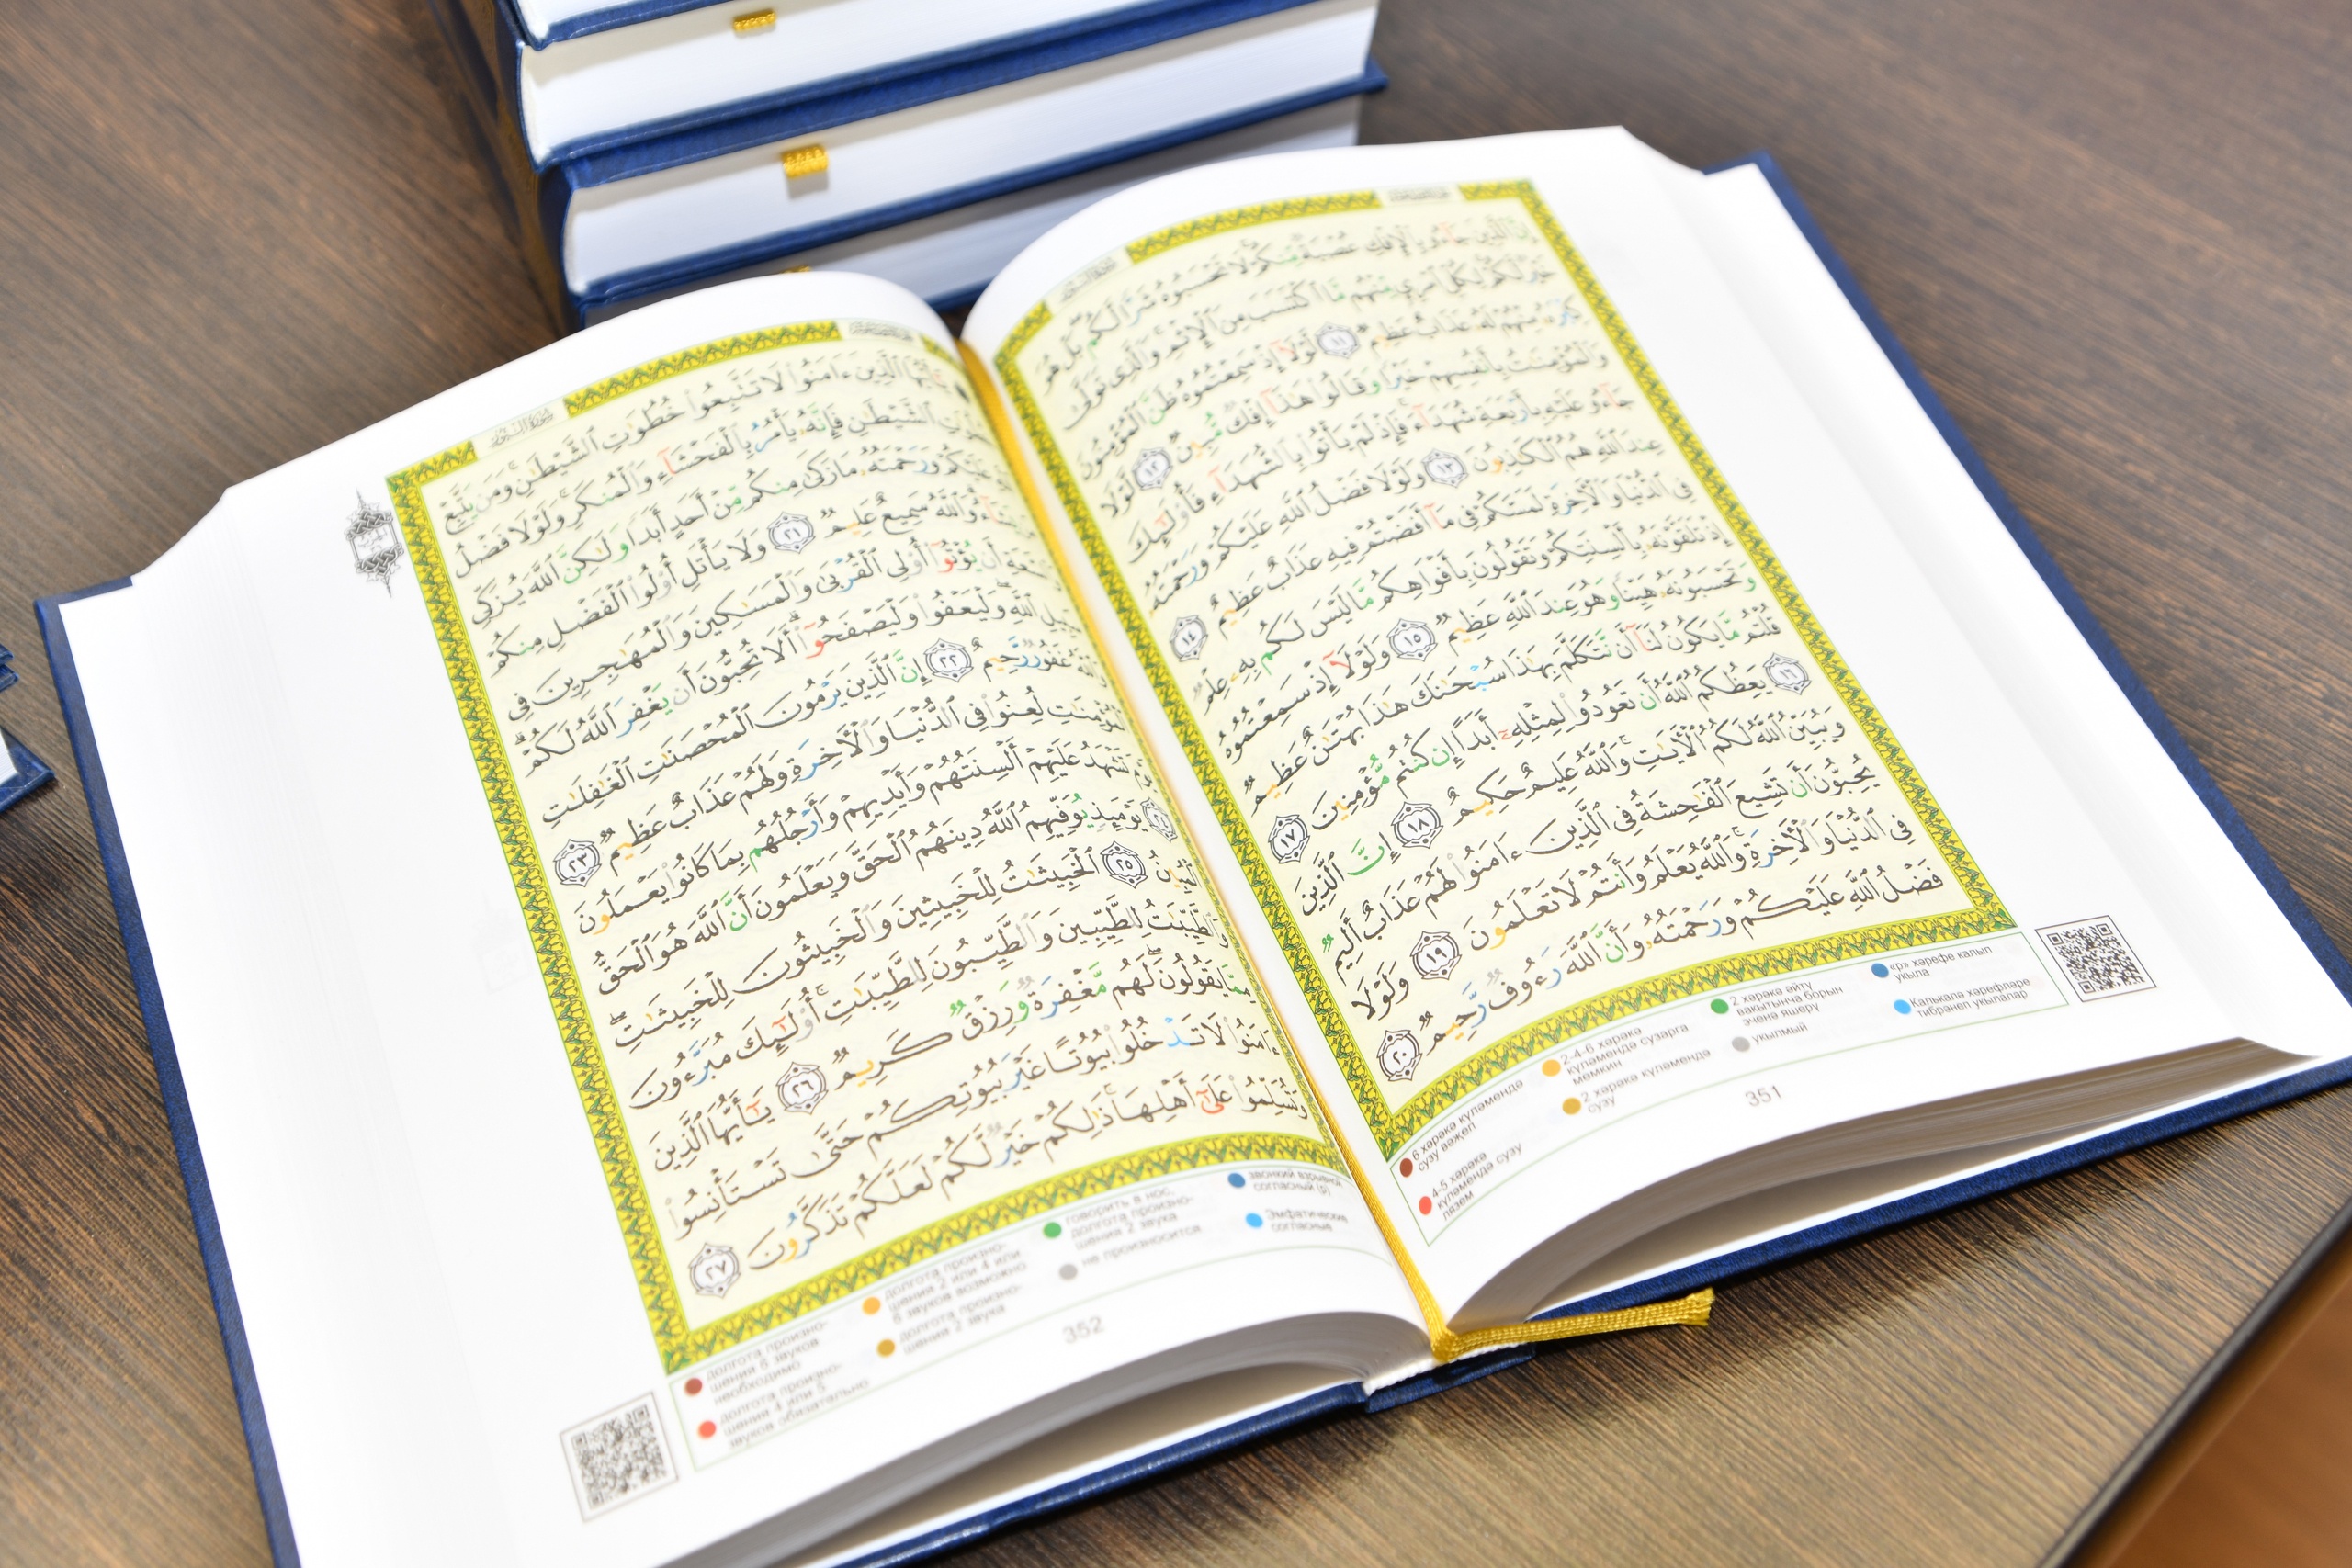 إِنَّ ٱلَّذِينَ جَآءُو بِٱلْإِفْكِ عُصْبَةٌ مِّنكُمْ لَا تَحْسَبُوهُ شَرًّا لَّكُم بَلْ هُوَ
خَيْرٌ لَّكُمْ لِكُلِّ ٱمْرِئٍ مِّنْهُم مَّا ٱكْتَسَبَ مِنَ ٱلْإِثْمِ وَٱلَّذِى تَوَلَّىٰ
كِبْرَهُۥ مِنْهُمْ لَهُۥ عَذَابٌ عَظِيمٌ ١١ لَّوْلَآ إِذْ سَمِعْتُمُوهُ ظَنَّ ٱلْمُؤْمِنُونَ
وَٱلْمُؤْمِنَٰتُ بِأَنفُسِهِمْ خَيْرًا وَقَالُوا۟ هَٰذَآ إِفْكٌ مُّبِينٌ ١٢ لَّوْلَا
جَآءُو عَلَيْهِ بِأَرْبَعَةِ شُهَدَآءَ ۚ فَإِذْ لَمْ يَأْتُوا۟ بِٱلشُّهَدَآءِ فَأُو۟لَٰٓئِكَ
عِندَ ٱللَّهِ هُمُ ٱلْكَٰذِبُونَ ١٣ وَلَوْلَا فَضْلُ ٱللَّهِ عَلَيْكُمْ وَرَحْمَتُهُۥ
فِى ٱلدُّنْيَا وَٱلْءَاخِرَةِ لَمَسَّكُمْ فِى مَآ أَفَضْتُمْ فِيهِ عَذَابٌ عَظِيمٌ ١٤
إِذْ تَلَقَّوْنَهُۥ بِأَلْسِنَتِكُمْ وَتَقُولُونَ بِأَفْوَاهِكُم مَّا لَيْسَ لَكُم بِهِۦ عِلْمٌ
وَتَحْسَبُونَهُۥ هَيِّنًا وَهُوَ عِندَ ٱللَّهِ عَظِيمٌ ١٥ وَلَوْلَآ إِذْ سَمِعْتُمُوهُ
قُلْتُم مَّا يَكُونُ لَنَآ أَن نَّتَكَلَّمَ بِهَٰذَا سُبْحَٰنَكَ هَٰذَا بُهْتَٰنٌ عَظِيمٌ
١٦ يَعِظُكُمُ ٱللَّهُ أَن تَعُودُوا۟ لِمِثْلِهِۦٓ أَبَدًا إِن كُنتُم مُّؤْمِنِينَ ١٧
وَيُبَيِّنُ ٱللَّهُ لَكُمُ ٱلْءَايَٰتِ ۚ وَٱللَّهُ عَلِيمٌ حَكِيمٌ ١٨ إِنَّ ٱلَّذِينَ
يُحِبُّونَ أَن تَشِيعَ ٱلْفَٰحِشَةُ فِى ٱلَّذِينَ ءَامَنُوا۟ لَهُمْ عَذَابٌ أَلِيمٌ
فِى ٱلدُّنْيَا وَٱلْءَاخِرَةِ ۚ وَٱللَّهُ يَعْلَمُ وَأَنتُمْ لَا تَعْلَمُونَ ١٩ وَلَوْلَا
فَضْلُ ٱللَّهِ عَلَيْكُمْ وَرَحْمَتُهُۥ وَأَنَّ ٱللَّهَ رَءُوفٌ رَّحِيمٌ ٢٠
6 хәрәкә күләмендә сузу вәҗел
4-5 хәрәкә күләмендә сузу лязем
2-4-6 хәрәкә күләмендә сузарга мөмкин
2 хәрәкә күләмендә сузу
2 хәрәкә әйтү вакытынча борын эченә яшерү
укылмый
«р» хәрефе калып укыла
Калькалә хәрефләре тибрәнеп укылалар
351
سُورَةُ النُّورِ
يَٰٓأَيُّهَا ٱلَّذِينَ ءَامَنُوا۟ لَا تَتَّبِعُوا۟ خُطُوَٰتِ ٱلشَّيْطَٰنِ ۚ وَمَن يَتَّبِعْ
خُطُوَٰتِ ٱلشَّيْطَٰنِ فَإِنَّهُۥ يَأْمُرُ بِٱلْفَحْشَآءِ وَٱلْمُنكَرِ ۚ وَلَوْلَا فَضْلُ
عَلَيْكُمْ وَرَحْمَتُهُۥ مَا زَكَىٰ مِنكُم مِّنْ أَحَدٍ أَبَدًا وَلَٰكِنَّ ٱللَّهَ يُزَكِّى
يَشَآءُ ۗ وَٱللَّهُ سَمِيعٌ عَلِيمٌ ٢١ وَلَا يَأْتَلِ أُو۟لُوا۟ ٱلْفَضْلِ مِنكُمْ
وَٱلسَّعَةِ أَن يُؤْتُوٓا۟ أُو۟لِى ٱلْقُرْبَىٰ وَٱلْمَسَٰكِينَ وَٱلْمُهَٰجِرِينَ فِى
سَبِيلِ ٱللَّهِ ۖ وَلْيَعْفُوا۟ وَلْيَصْفَحُوٓا۟ ۗ أَلَا تُحِبُّونَ أَن يَغْفِرَ ٱللَّهُ لَكُمْ ۗ
وَٱللَّهُ غَفُورٌ رَّحِيمٌ ٢٢ إِنَّ ٱلَّذِينَ يَرْمُونَ ٱلْمُحْصَنَٰتِ ٱلْغَٰفِلَٰتِ
ٱلْمُؤْمِنَٰتِ لُعِنُوا۟ فِى ٱلدُّنْيَا وَٱلْءَاخِرَةِ وَلَهُمْ عَذَابٌ عَظِيمٌ ٢٣
يَوْمَ تَشْهَدُ عَلَيْهِمْ أَلْسِنَتُهُمْ وَأَيْدِيهِمْ وَأَرْجُلُهُم بِمَا كَانُوا۟ يَعْمَلُونَ
٢٤ يَوْمَئِذٍ يُوَفِّيهِمُ ٱللَّهُ دِينَهُمُ ٱلْحَقَّ وَيَعْلَمُونَ أَنَّ ٱللَّهَ هُوَ ٱلْحَقُّ
ٱلْمُبِينُ ٢٥ ٱلْخَبِيثَٰتُ لِلْخَبِيثِينَ وَٱلْخَبِيثُونَ لِلْخَبِيثَٰتِ ۖ
وَٱلطَّيِّبَٰتُ لِلطَّيِّبِينَ وَٱلطَّيِّبُونَ لِلطَّيِّبَٰتِ ۚ أُو۟لَٰٓئِكَ مُبَرَّءُونَ
مِمَّا يَقُولُونَ ۖ لَهُم مَّغْفِرَةٌ وَرِزْقٌ كَرِيمٌ ٢٦ يَٰٓأَيُّهَا ٱلَّذِينَ
ءَامَنُوا۟ لَا تَدْخُلُوا۟ بُيُوتًا غَيْرَ بُيُوتِكُمْ حَتَّىٰ تَسْتَأْنِسُوا۟
وَتُسَلِّمُوا۟ عَلَىٰٓ أَهْلِهَا ۚ ذَٰلِكُمْ خَيْرٌ لَّكُمْ لَعَلَّكُمْ تَذَكَّرُونَ ٢٧
долгота произно-
шения 6 звуков
необходимо
долгота произно-
шения 4 или 5
звуков обязательно
долгота произно-
шения 2 или 4 или
6 звуков возможно
долгота произно-
шения 2 звука
говорить в нос,
долгота произно-
шения 2 звука
не произносится
звонкий взрывной
согласный (р)
Эмфатические
согласные
352